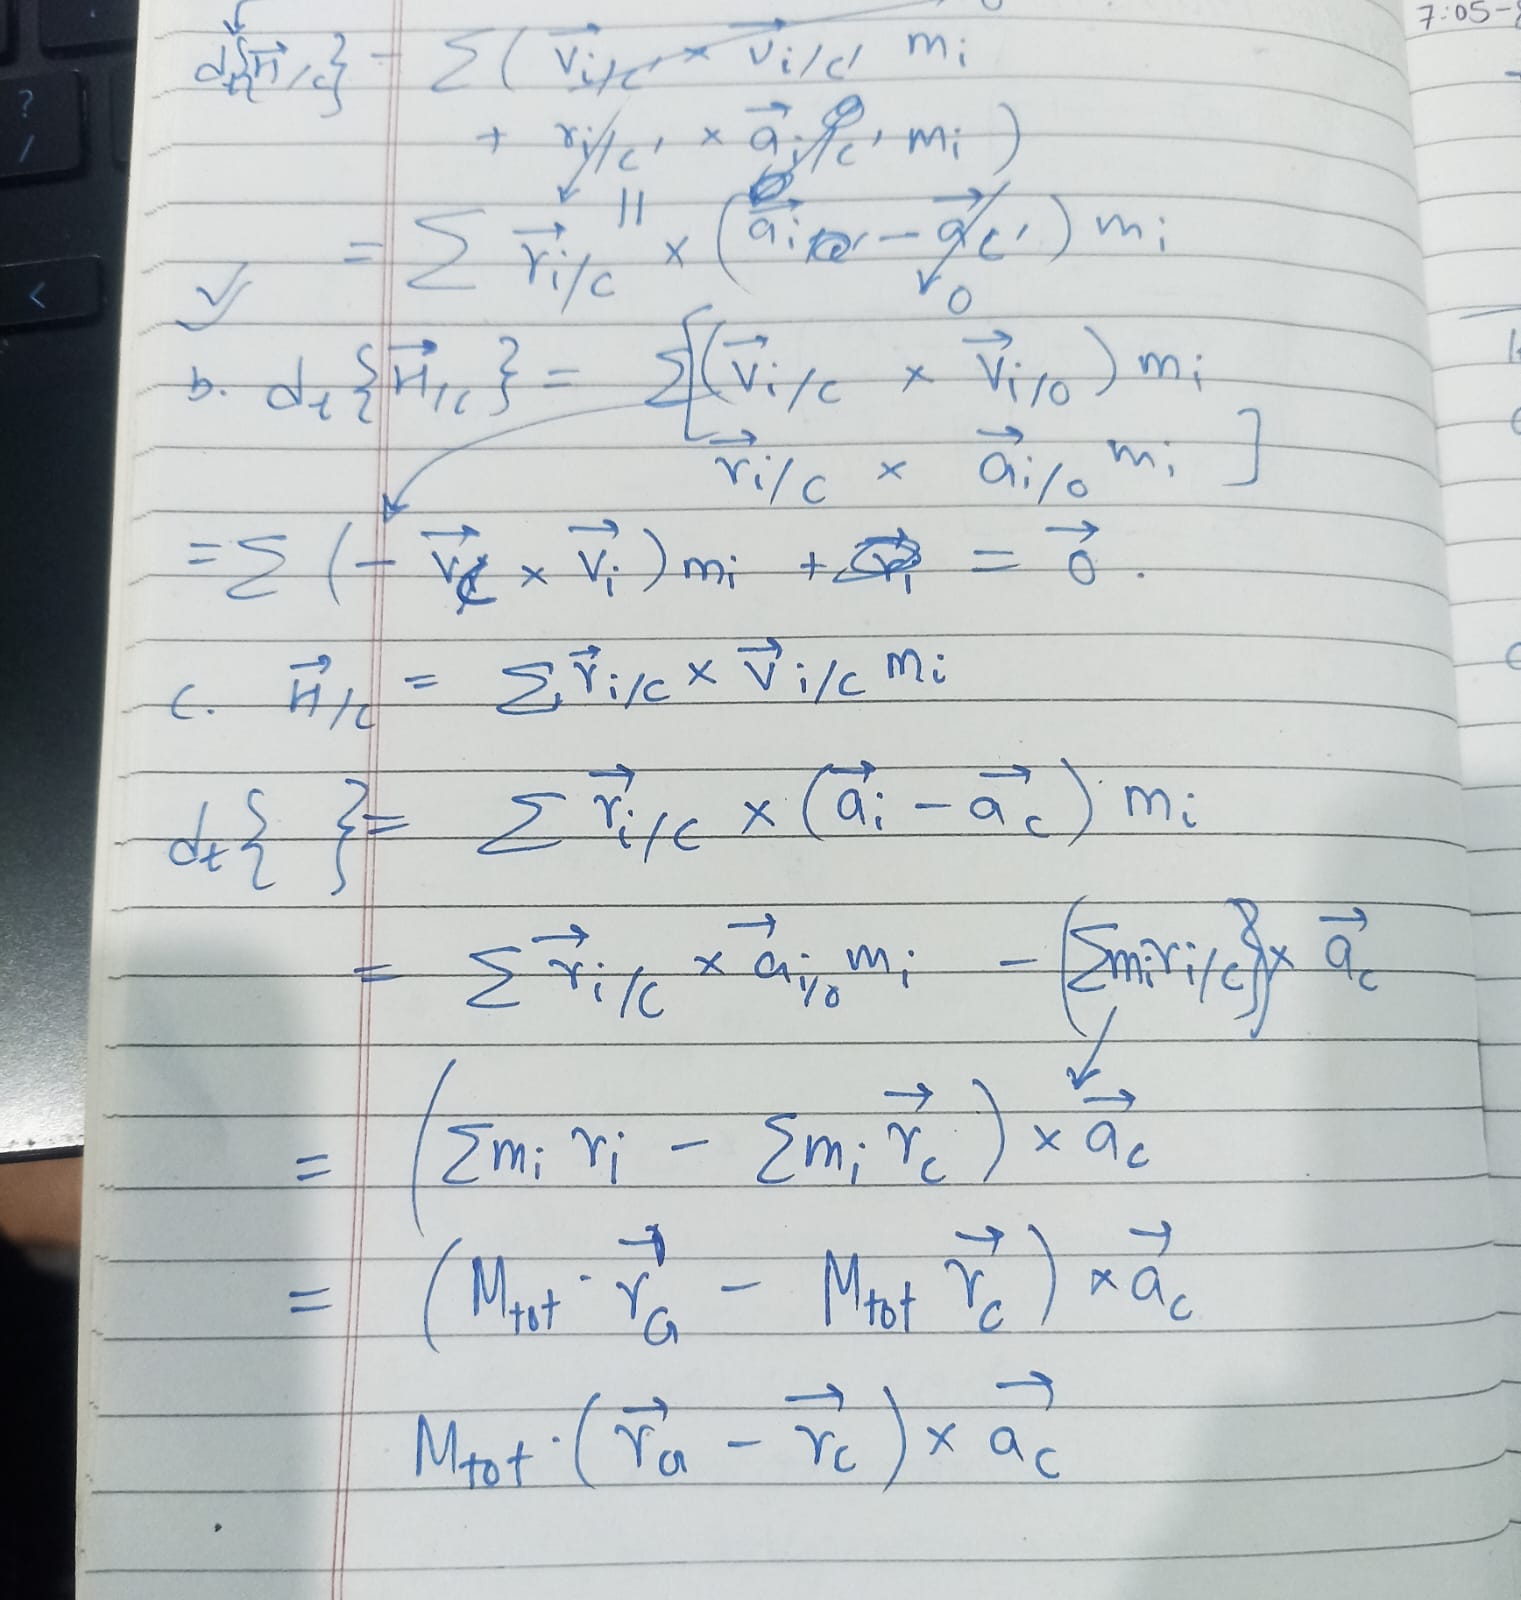 7:05-
d_t{H⃗_{/c}} = Σ( v⃗_{i/c'} × v⃗_{i/c'} m_i
+ r_{i/c'} × a⃗_{i/c'} m_i )
= Σ r⃗_{i/c} × ( a⃗_i - a⃗_{c'} ) m_i
0
b. d_t{H⃗_{/c}} = Σ[(v⃗_{i/c} × v⃗_{i/0}) m_i
r⃗_{i/c} × a⃗_{i/0} m_i ]
= Σ (- v⃗_c × v⃗_i) m_i + = 0⃗ .
c. H⃗_{/c} = Σ r⃗_{i/c} × v⃗_{i/c} m_i
d_t{ } = Σ r⃗_{i/c} × (a⃗_i - a⃗_c) m_i
= Σ r⃗_{i/c} × a⃗_{i/0} m_i - (Σ m_i r_{i/c}) × a⃗_c
= (Σ m_i r_i - Σ m_i r⃗_c) × a⃗_c
= (M_tot · r⃗_G - M_tot r⃗_c) × a⃗_c
M_tot · (r⃗_G - r⃗_c) × a⃗_c